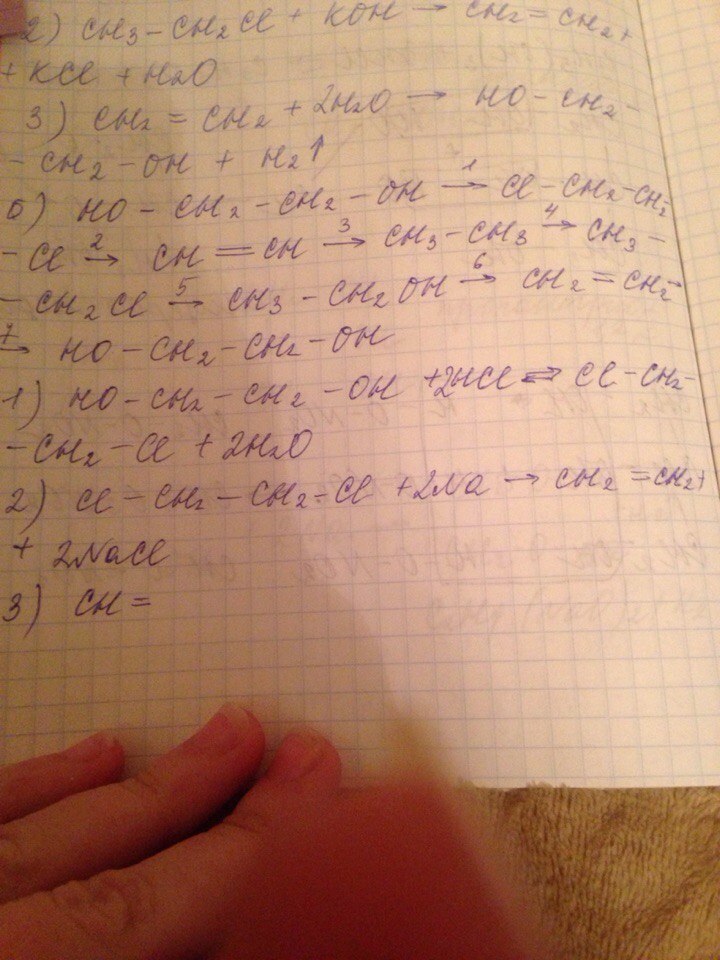 2) CH₃ – CH₂Cl + KOH → CH₂ = CH₂ +
+ KCl + H₂O
3) CH₂ = CH₂ + 2H₂O → HO – CH₂ –
– CH₂ – OH + H₂↑
б) HO – CH₂ – CH₂ – OH →¹ Cl – CH₂ – CH₂ –
– Cl →² CH = CH →³ CH₃ – CH₃ →⁴ CH₃ –
– CH₂Cl →⁵ CH₃ – CH₂OH →⁶ CH₂ = CH₂ →
→⁷ HO – CH₂ – CH₂ – OH
1) HO – CH₂ – CH₂ – OH + 2HCl ⇌ Cl – CH₂ –
– CH₂ – Cl + 2H₂O
2) Cl – CH₂ – CH₂ – Cl + 2Na → CH₂ = CH₂ +
+ 2NaCl
3) CH =